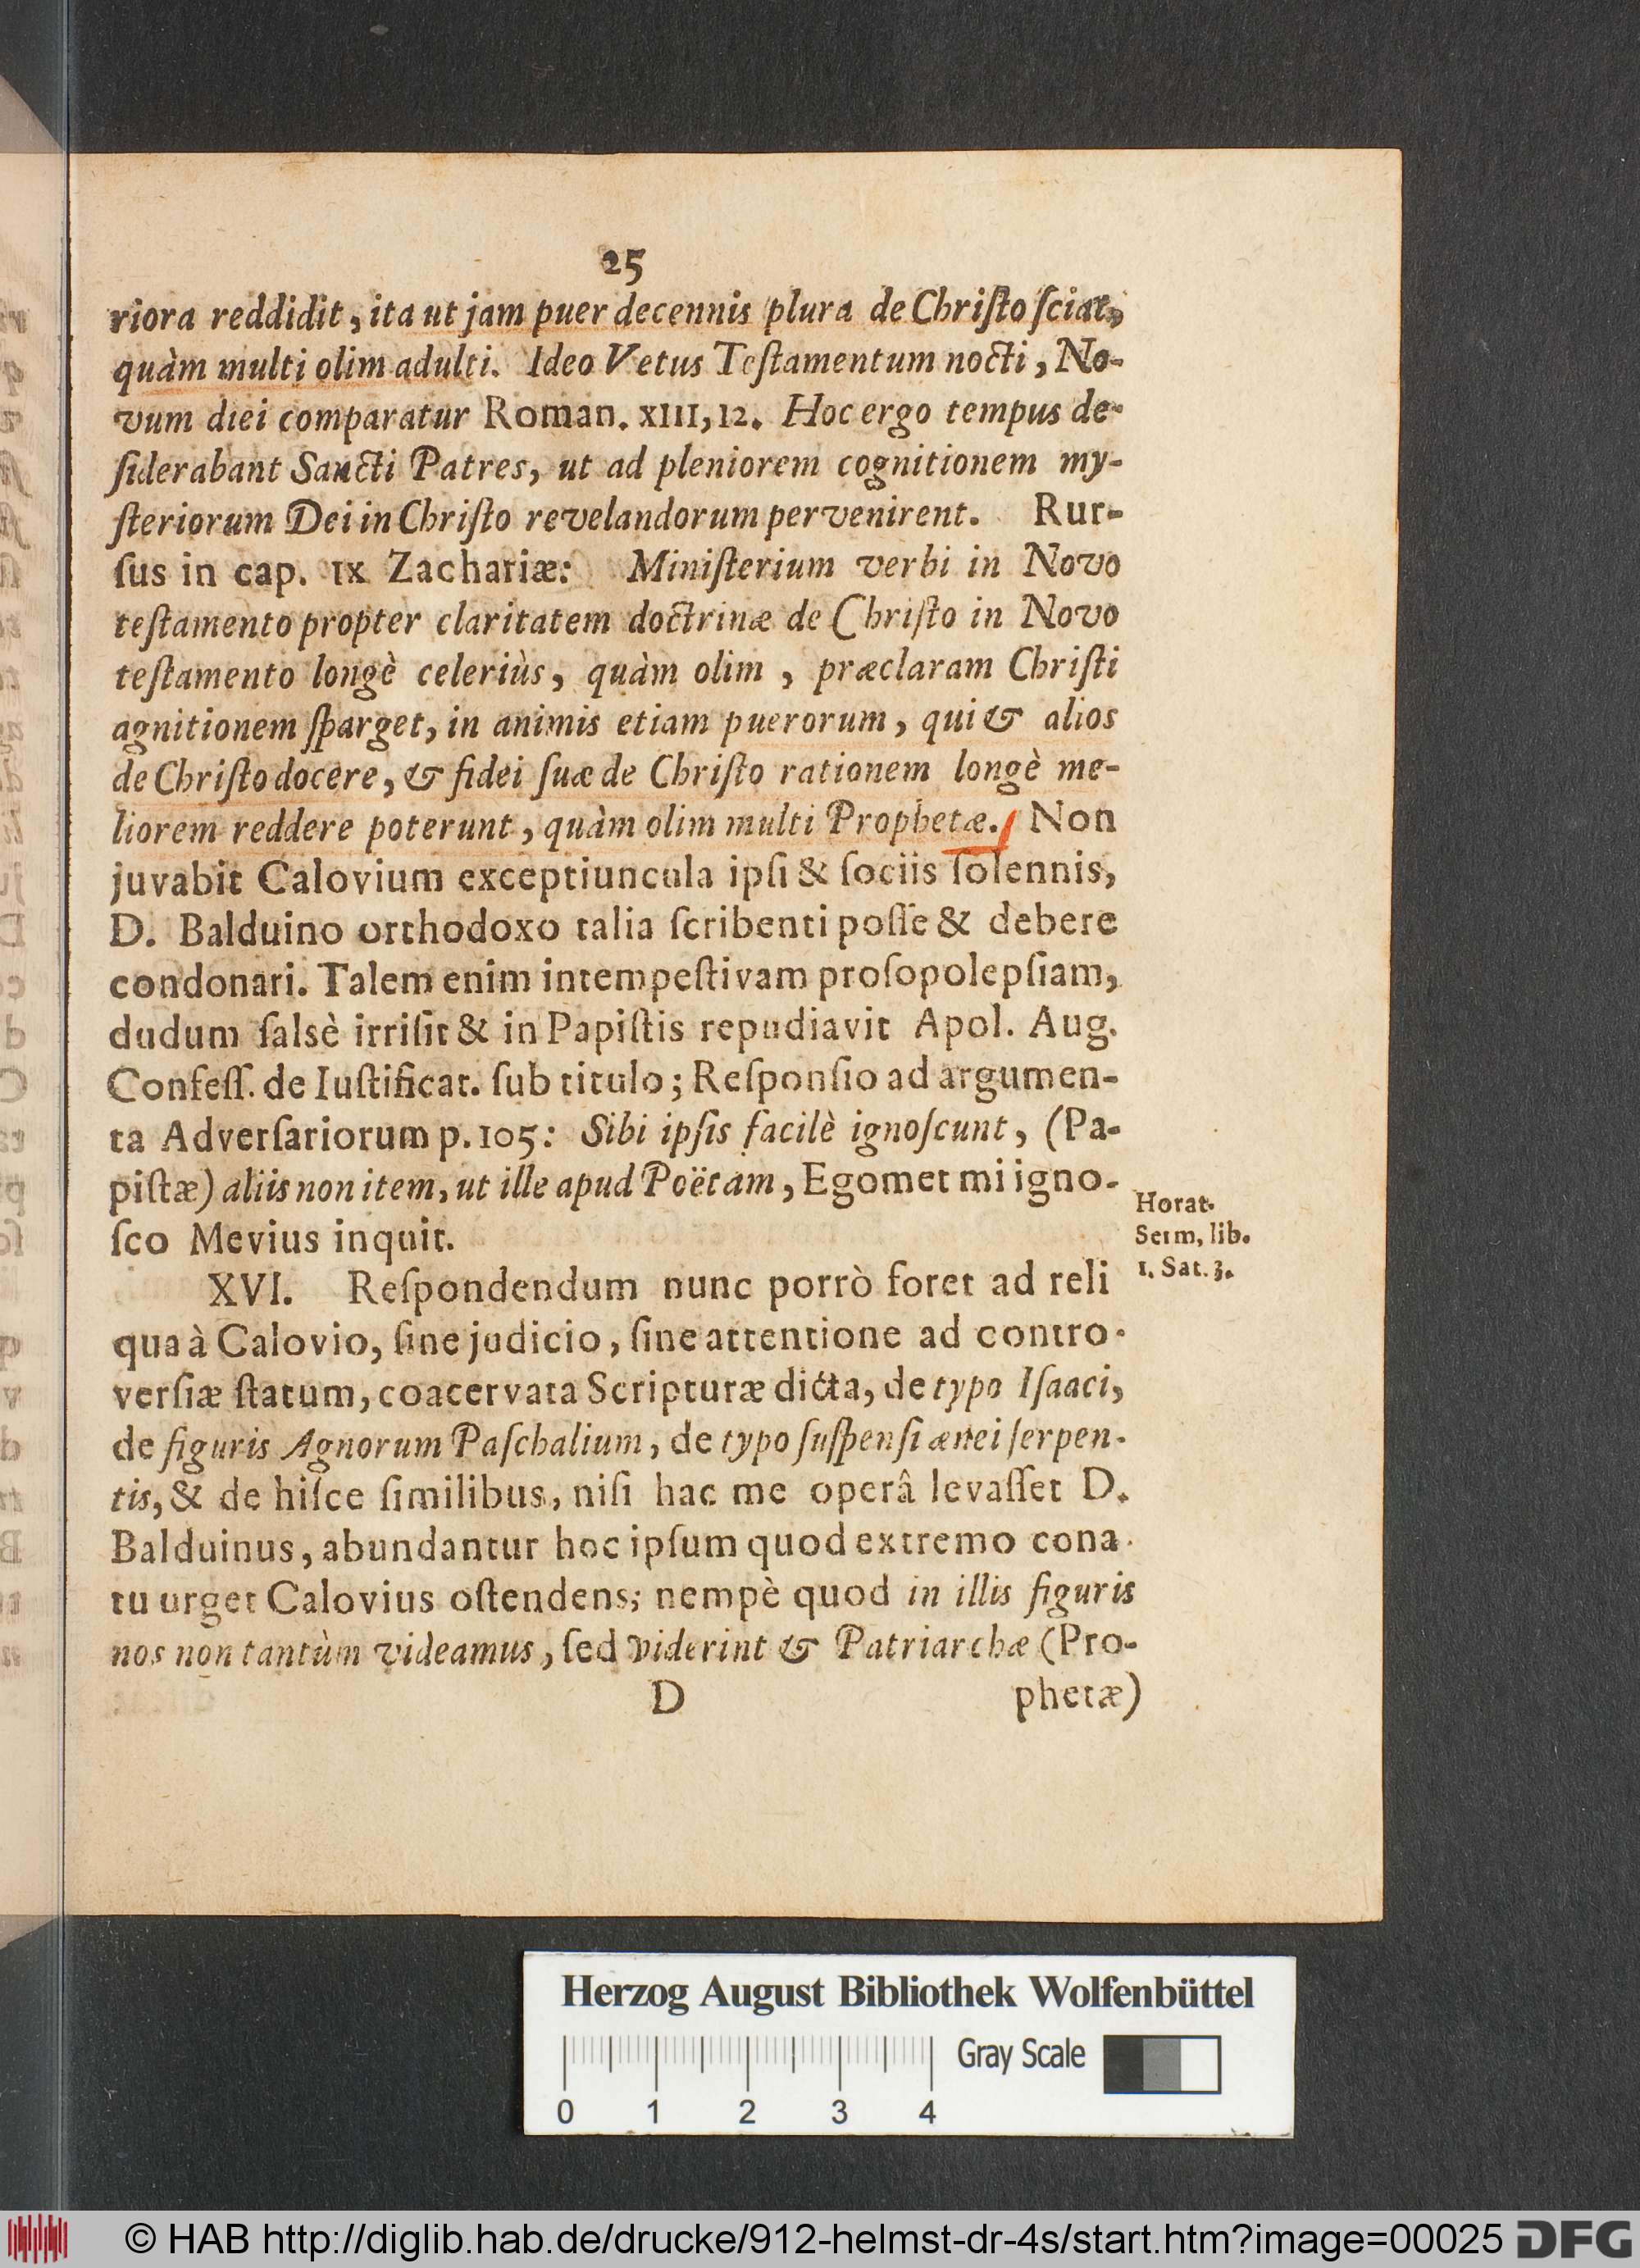 25
riora reddidit, ita ut jam puer decennis plura de Chriſto ſciat,
quàm multi olim adulti. Ideo Vetus Teſtamentum nocti, No-
vum diei comparatur Roman. XIII, 12. Hoc ergo tempus de-
ſiderabant Sancti Patres, ut ad pleniorem cognitionem my-
ſteriorum Dei in Chriſto revelandorum pervenirent. Rur-
ſus in cap. IX Zachariæ: Miniſterium verbi in Novo
teſtamento propter claritatem doctrinæ de Chriſto in Novo
teſtamento longè celeriùs, quàm olim, præclaram Chriſti
agnitionem ſparget, in animis etiam puerorum, qui & alios
de Chriſto docere, & fidei ſuæ de Chriſto rationem longè me-
liorem reddere poterunt, quàm olim multi Prophetæ. Non
juvabit Calovium exceptiuncula ipſi & ſociis ſolennis,
D. Balduino orthodoxo talia ſcribenti poſſe & debere
condonari. Talem enim intempeſtivam proſopolepſiam,
dudum ſalsè irriſit & in Papiſtis repudiavit Apol. Aug.
Confeſſ. de Iuſtificat. ſub titulo; Reſponſio ad argumen-
ta Adverſariorum p. 105: Sibi ipſis facilè ignoſcunt, (Pa-
piſtæ) aliis non item, ut ille apud Poëtam, Egomet mi igno-
ſco Mevius inquit.
Horat.
Serm, lib.
1. Sat. 3.
XVI. Reſpondendum nunc porrò foret ad reli
qua à Calovio, ſine judicio, ſine attentione ad contro-
verſiæ ſtatum, coacervata Scripturæ dicta, de typo Iſaaci,
de figuris Agnorum Paſchalium, de typo ſuſpenſi ænei ſerpen-
tis, & de hiſce ſimilibus, niſi hac me operâ levaſſet D.
Balduinus, abundantur hoc ipſum quod extremo cona-
tu urget Calovius oſtendens; nempè quod in illis figuris
nos non tantùm videamus, ſed viderint & Patriarchæ (Pro-
D phetæ)
Herzog August Bibliothek Wolfenbüttel
Gray Scale
0 1 2 3 4
© HAB http://diglib.hab.de/drucke/912-helmst-dr-4s/start.htm?image=00025 DFG